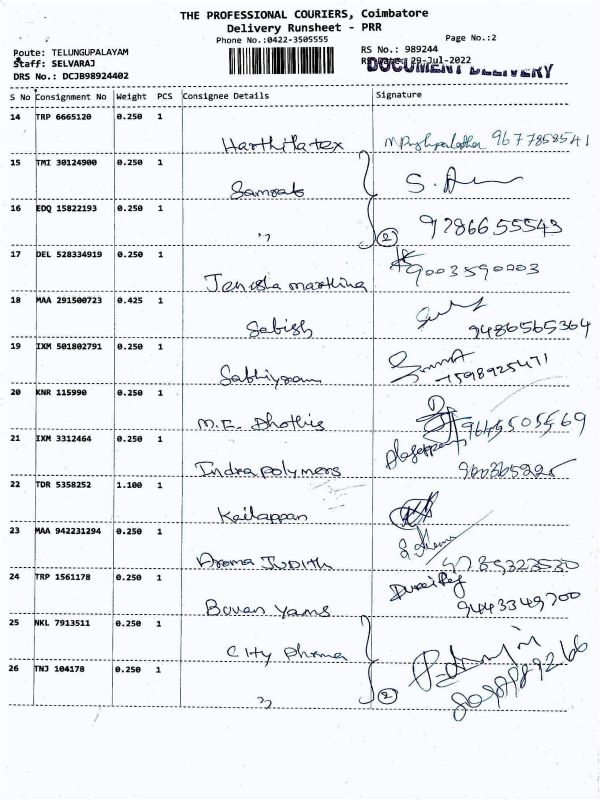 THE PROFESSIONAL COURIERS, Coimbatore
Delivery Runsheet - PRR
Phone No.:0422-3505555
Page No.:2
Poute: TELUNGUPALAYAM
RS No.: 989244
Staff: SELVARAJ
RS Date: 29-Jul-2022
DOCUMENT DELIVERY
DRS No.: DCJB98924402
S No Consignment No Weight PCS Consignee Details Signature
14 TRP 6665120 0.250 1
Harthikatex 9677858541
15 TMI 30124900 0.250 1
Samrat
16 EDQ 15822193 0.250 1
" 2 9786655543
17 DEL 528334919 0.250 1
9003590003
18 MAA 291500723 0.425 1
Sabish 9486565364
19 IXM 501802791 0.250 1
7598925471
20 KNR 115990 0.250 1
M.E. Dhothis
21 IXM 3312464 0.250 1
Indra polymers
22 TDR 5358252 1.100 1
Kailappan
23 MAA 942231294 0.250 1
Aroma Judith
24 TRP 1561178 0.250 1
Bavan yams 9443349700
25 NKL 7913511 0.250 1
City Pharma
26 TNJ 104178 0.250 1
" 2